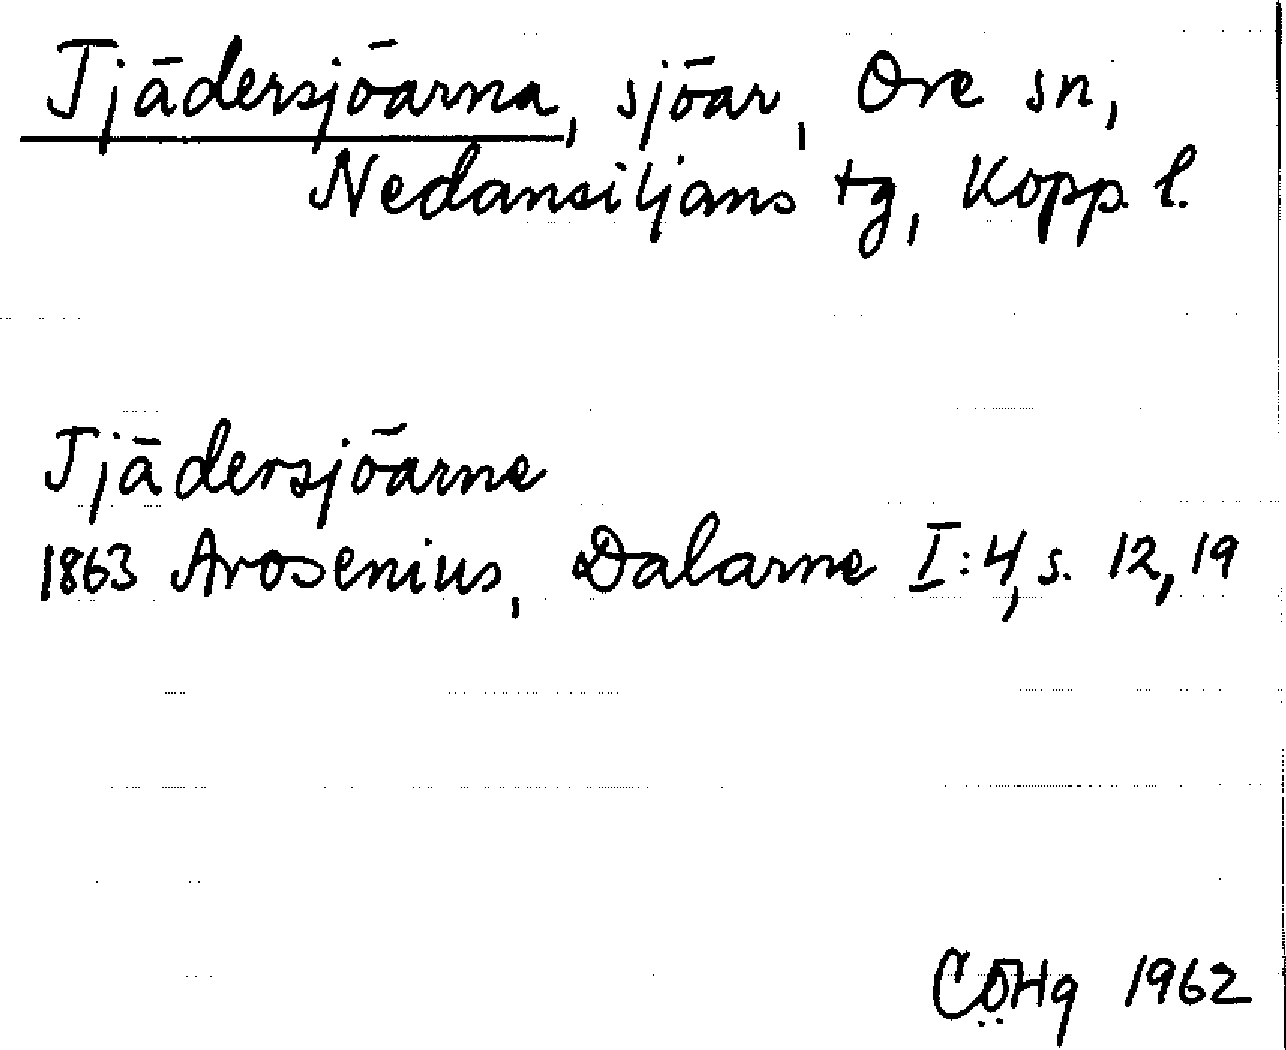 Tjädersjöarna, sjöar, Ore sn,
Nedansiljans tg, Kopp. l.
Tjädersjöarne
1863 Arosenius, Dalarne I:4, s. 12, 19
CÖHg 1962